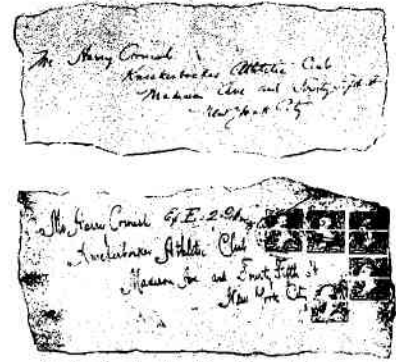 Mr Harry Cornish
Knickerbocker Athletic Club
Madison Ave and
New York City
Mr. Harry Cornish
Knickerbocker Athletic Club
Madison Ave and Forty Fifth St
New York City